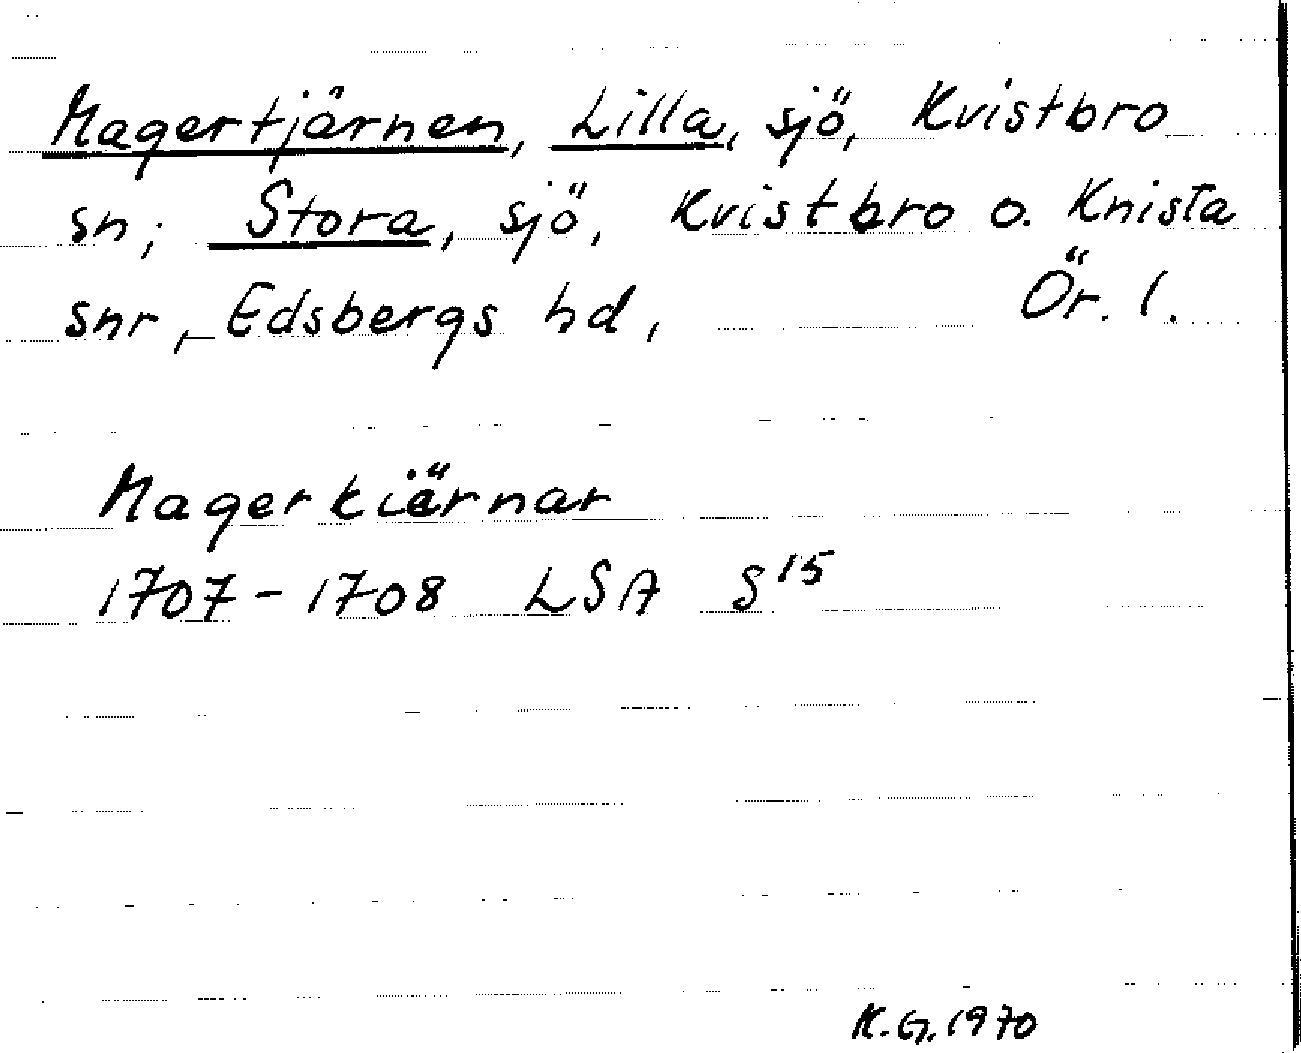 Magertjärnen, Lilla, sjö, Kvistbro
sn; Stora, sjö, Kvistbro o. Knista
snr, Edsbergs hd, Ör. l.
Magerkiärnar
1707-1708 LSA S15
K.G. 1970